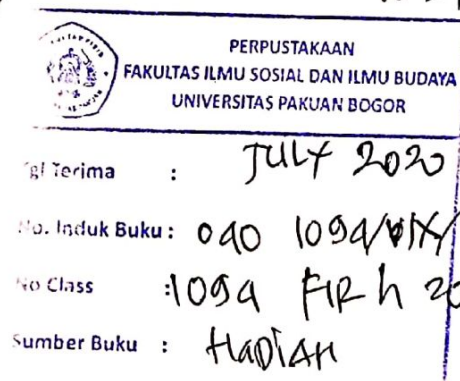 PERPUSTAKAAN
FAKULTAS ILMU SOSIAL DAN ILMU BUDAYA
UNIVERSITAS PAKUAN BOGOR
Tgl Terima : JULY 2020
No. Induk Buku : 040 1094/
No Class : 1094 FIR h 20
Sumber Buku : HADIAH